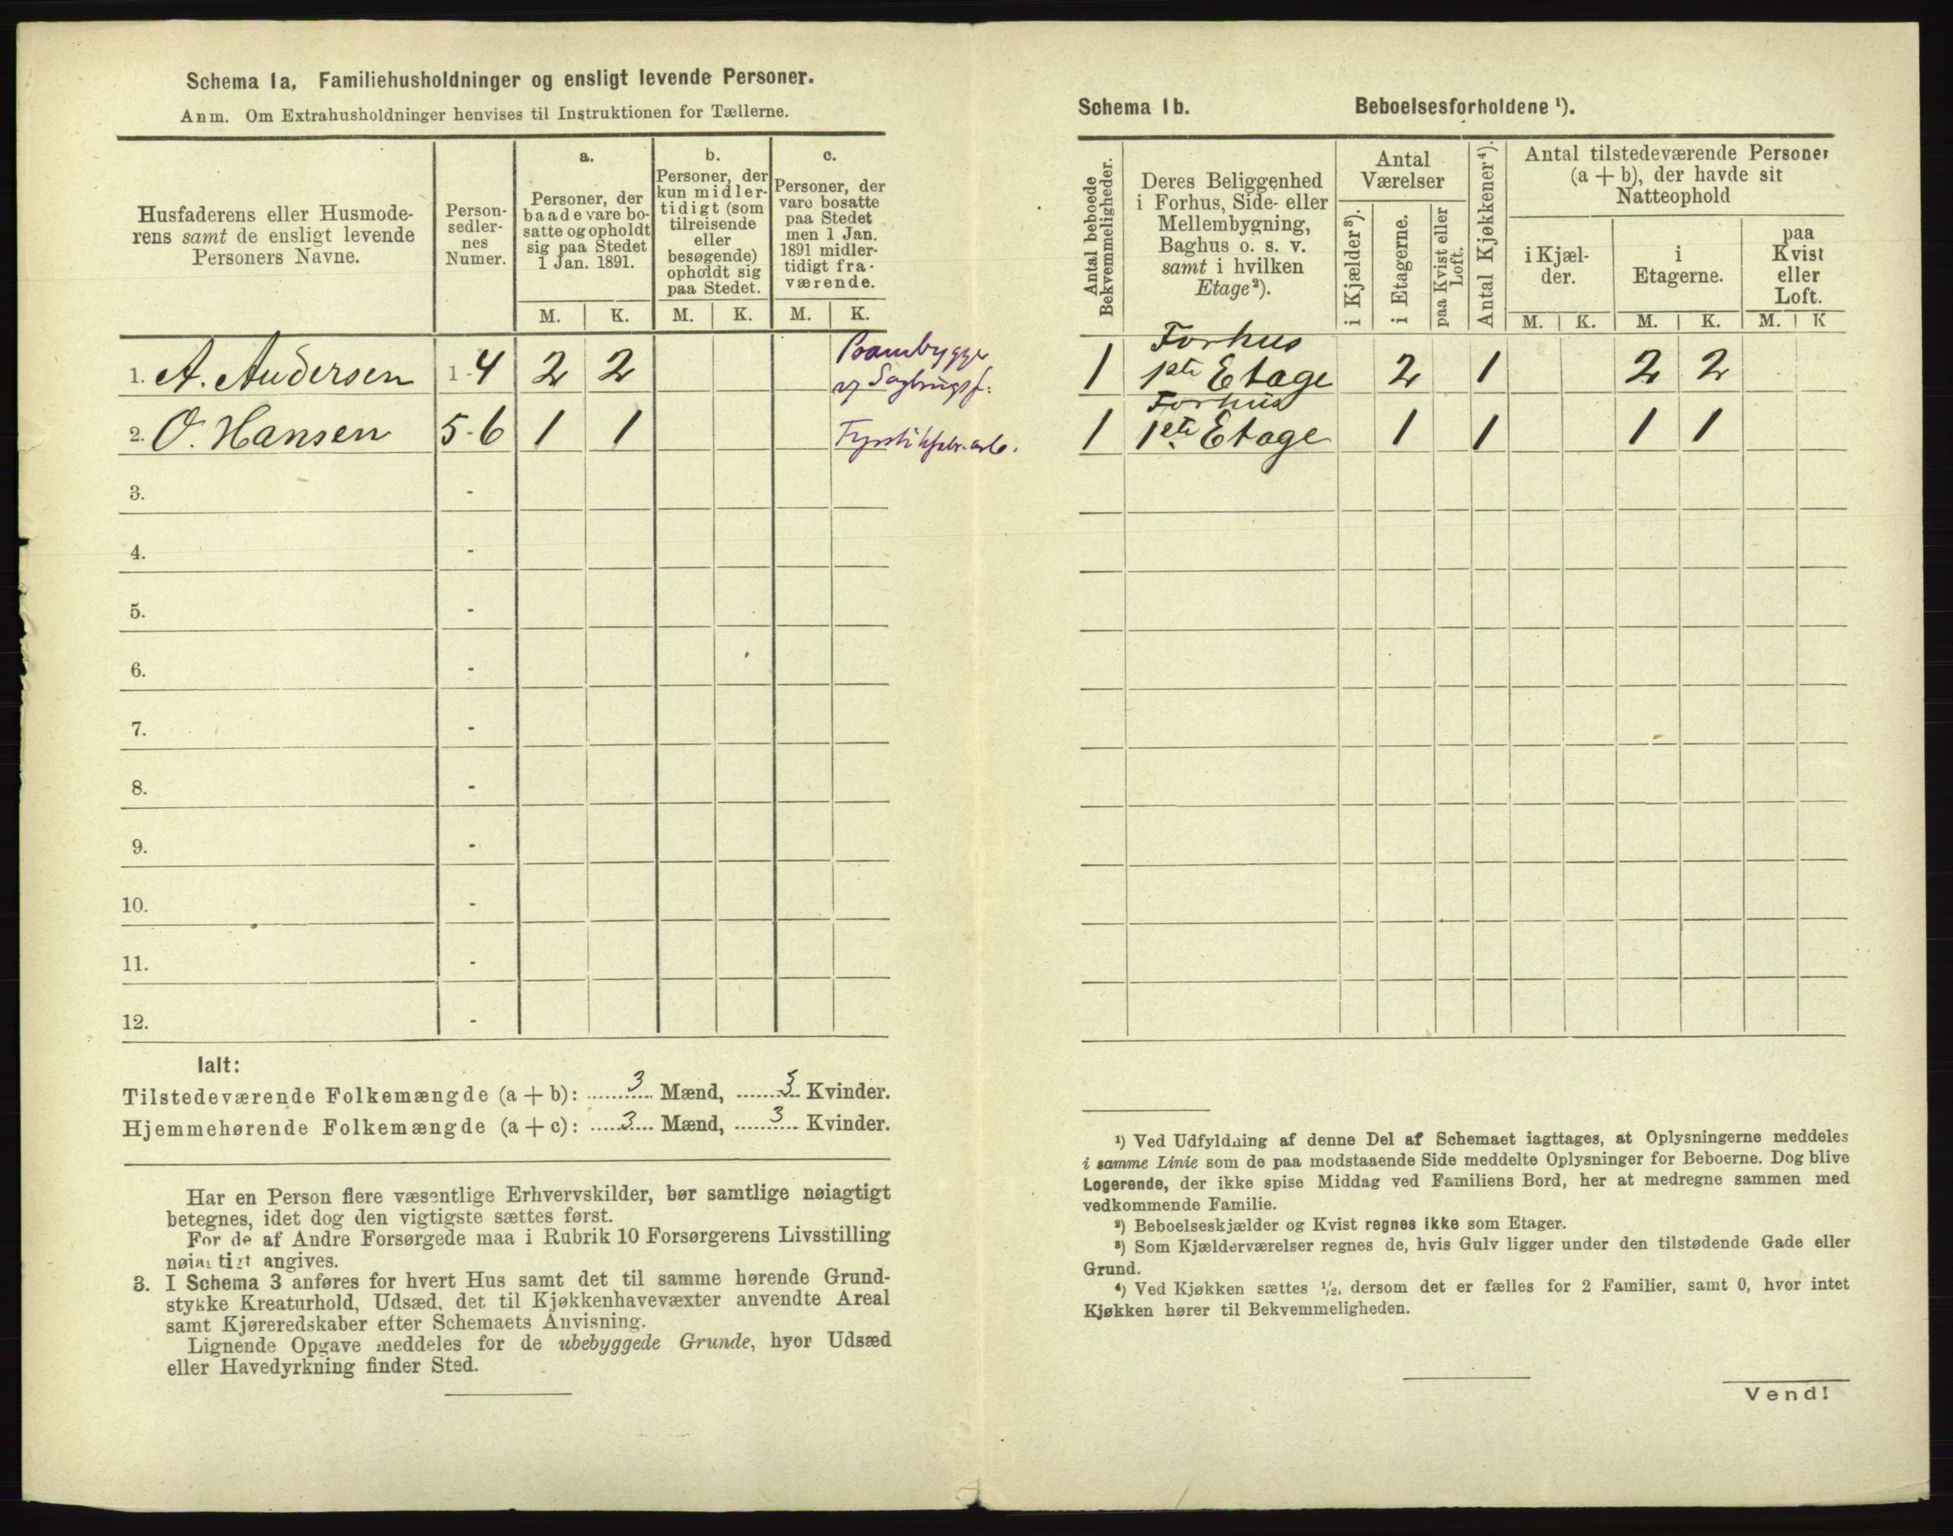 Schema 1a, Familiehusholdninger og ensligt levende Personer.
Anm. Om Extrahusholdninger henvises til Instruktionen for Tællerne.
Husfaderens eller Husmode-
rens samt de ensligt levende
Personers Navne.
Person-
sedler-
nes
Numer.
a.
Personer, der
baade vare bo-
satte og opholdt
sig paa Stedet
1 Jan. 1891.
M. K.
b.
Personer, der
kun midler-
tidigt (som
tilreisende
eller
besøgende)
opholdt sig
paa Stedet.
M. K.
c.
Personer, der
vare bosatte
paa Stedet
men 1 Jan.
1891 midler-
tidigt fra-
værende.
M. K.
1. A. Andersen 1-4 2 2
2. O. Hansen 5-6 1 1
3. -
4. -
5. -
6. -
7. -
8. -
9. -
10. -
11. -
12. -
Ialt:
Tilstedeværende Folkemængde (a + b): 3 Mænd, 3 Kvinder.
Hjemmehørende Folkemængde (a + c): 3 Mænd, 3 Kvinder.
Har en Person flere væsentlige Erhvervskilder, bør samtlige nøiagtigt
betegnes, idet dog den vigtigste sættes først.
For de af Andre Forsørgede maa i Rubrik 10 Forsørgerens Livsstilling
nøiagtigt angives.
3. I Schema 3 anføres for hvert Hus samt det til samme hørende Grund-
stykke Kreaturhold, Udsæd, det til Kjøkkenhavevæxter anvendte Areal
samt Kjøreredskaber efter Schemaets Anvisning.
Lignende Opgave meddeles for de ubebyggede Grunde, hvor Udsæd
eller Havedyrkning finder Sted.
Schema 1b. Beboelsesforholdene ¹).
Antal beboede
Bekvemmeligheder.
Deres Beliggenhed
i Forhus, Side- eller
Mellembygning,
Baghus o. s. v.
samt i hvilken
Etage²).
Antal
Værelser
i Kjælder³).
i Etagerne.
paa Kvist eller
Loft.
Antal Kjøkkener⁴).
Antal tilstedeværende Personer
(a + b), der havde sit
Natteophold
i Kjæl-
der.
i
Etagerne.
paa
Kvist
eller
Loft.
M. K. M. K. M. K
Forhus
1 1ste Etage 2 1 2 2
Forhus
1 1ste Etage 1 1 1 1
¹) Ved Udfyldning af denne Del af Schemaet iagttages, at Oplysningerne meddeles
i samme Linie som de paa modstaaende Side meddelte Oplysninger for Beboerne. Dog blive
Logerende, der ikke spise Middag ved Familiens Bord, her at medregne sammen med
vedkommende Familie.
²) Beboelseskjælder og Kvist regnes ikke som Etager.
³) Som Kjælderværelser regnes de, hvis Gulv ligger under den tilstødende Gade eller
Grund.
⁴) Ved Kjøkken sættes ½, dersom det er fælles for 2 Familier, samt 0, hvor intet
Kjøkken hører til Bekvemmeligheden.
Vend!